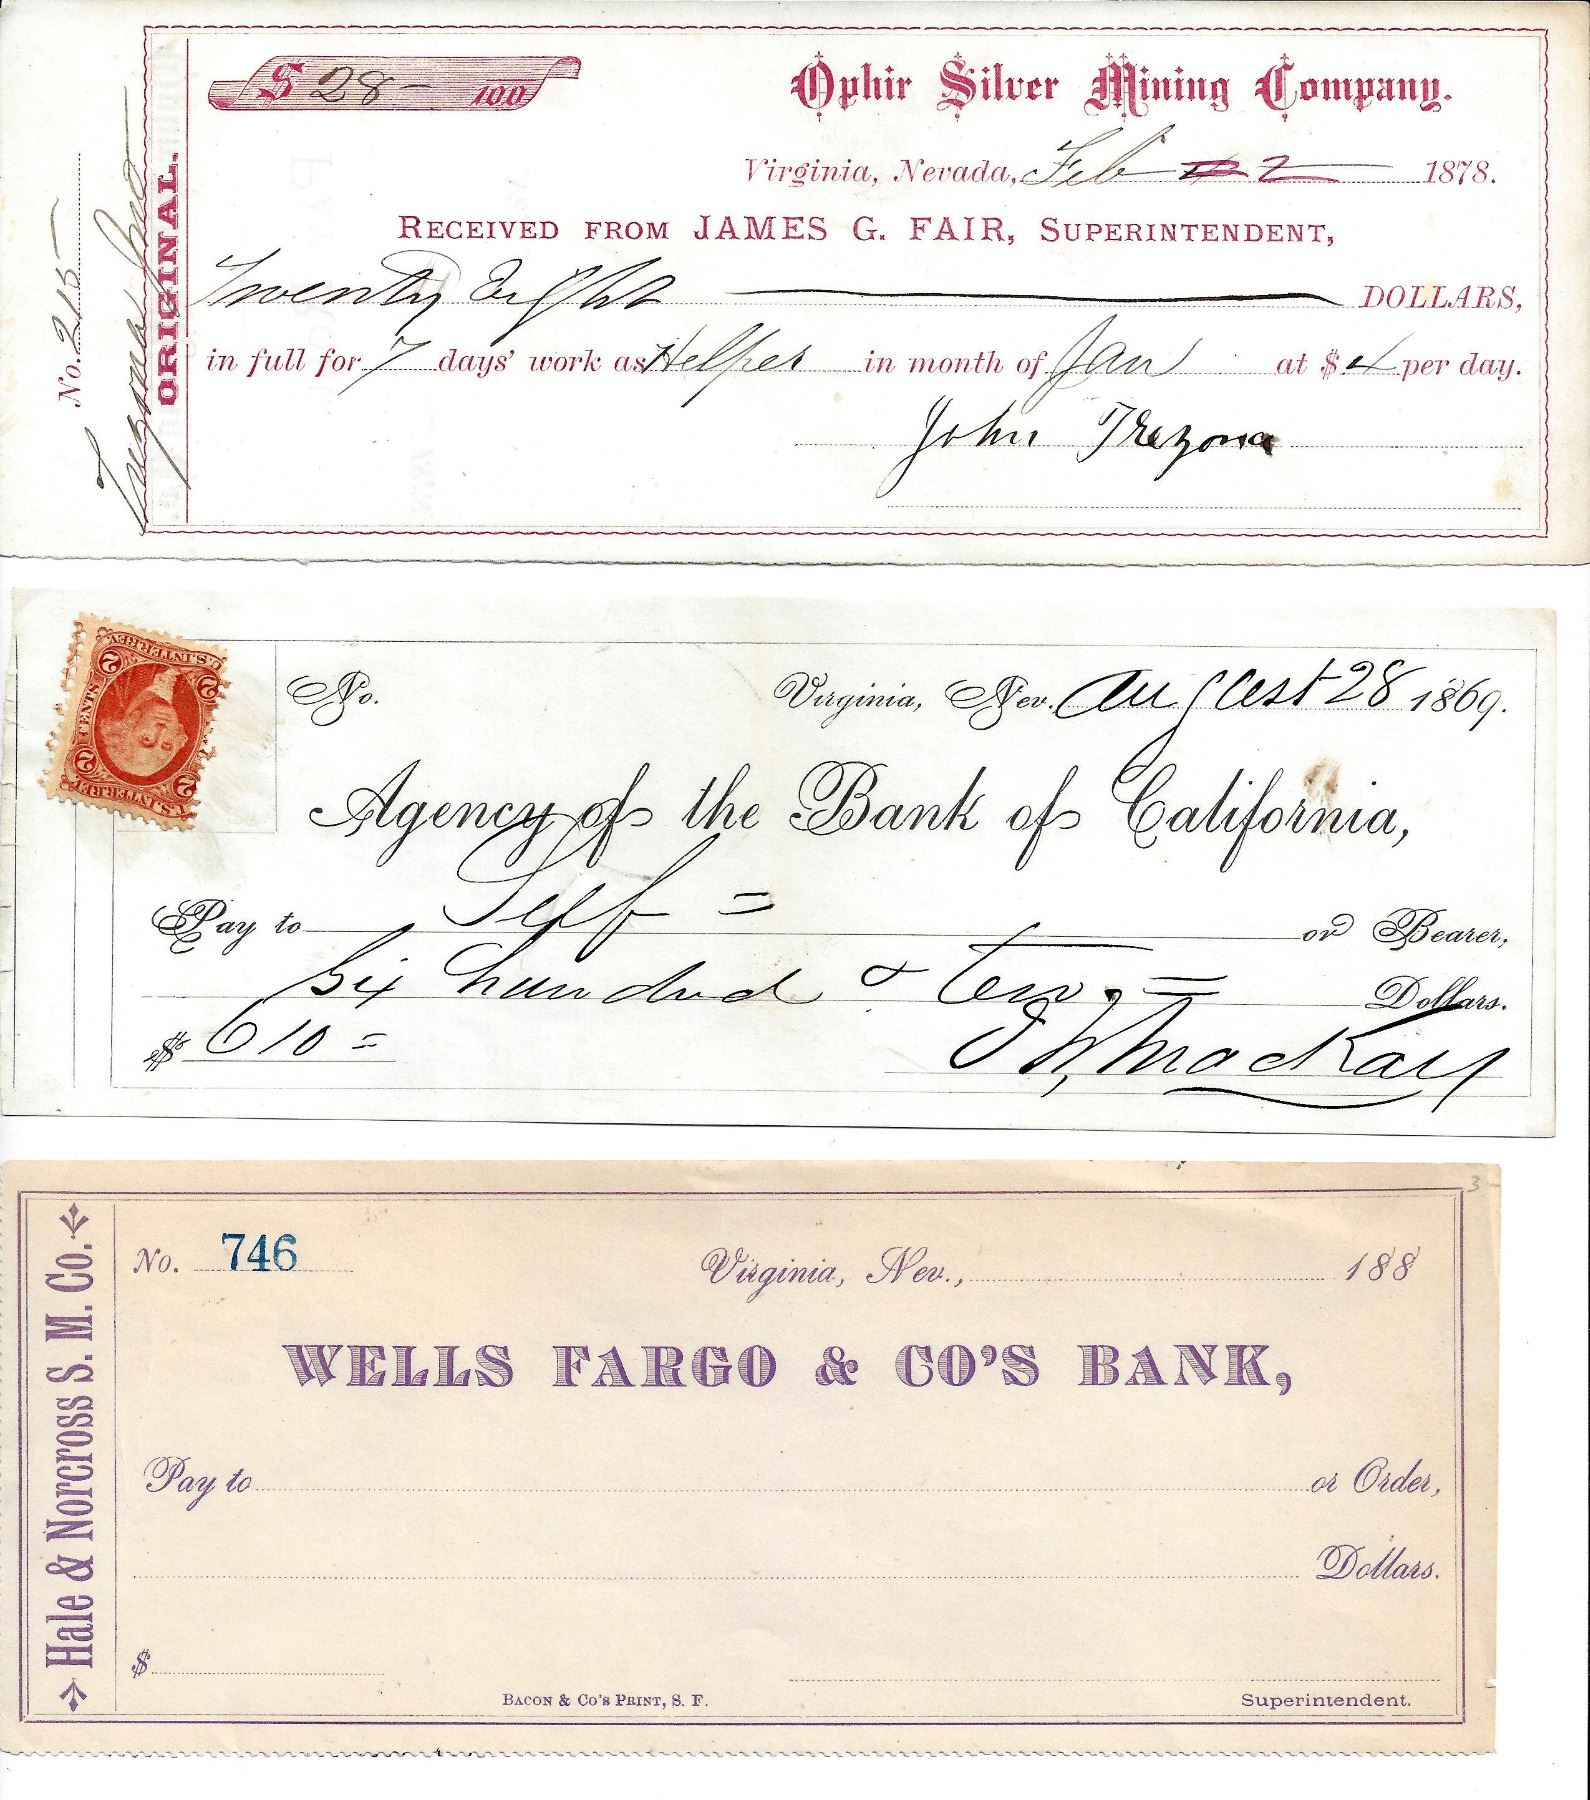 $ 28 - 100
Ophir Silver Mining Company.
Virginia, Nevada, Feb 2 1878.
RECEIVED FROM JAMES G. FAIR, SUPERINTENDENT,
Twenty Eight DOLLARS,
in full for 7 days' work as Helper in month of Jan at $ 4 per day.
John Trezona
No. 215
Trezona Jno
ORIGINAL.
U.S. INTER. REV.
2 CENTS 2
U.S. INTER. REV.
No.
Virginia, Nev. August 28 1869.
Agency of the Bank of California,
Pay to Self = or Bearer,
Six hundred & ten = Dollars.
$ 610 =
J W Mackay
3
Hale & Norcross S. M. Co.
No. 746
Virginia, Nev., 188
WELLS FARGO & CO'S BANK,
Pay to or Order,
Dollars.
$
BACON & CO'S PRINT, S. F.
Superintendent.